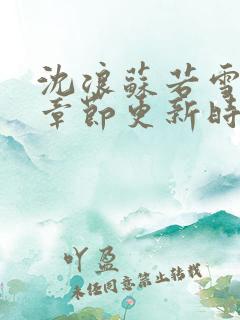 沈浪蘇若雪
章節更新時
吖盈
未经同意禁止转载